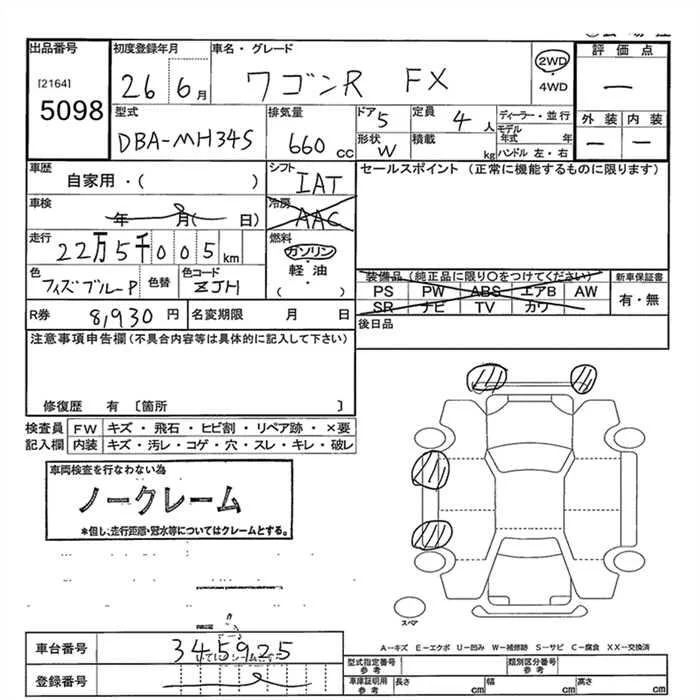 出品番号 初度登録年月 車名・グレード 評価点
[2164] 26 6月 ワゴンR FX 2WD ・ 4WD —
5098 型式 排気量 ドア 定員 ディーラー・並行 外装 内装
DBA-MH34S 660 CC 5 4人 モデル年式 年 — —
形状 W 積載 kg ハンドル 左・右
車歴 シフト セールスポイント (正常に機能するものに限ります)
自家用・( ) IAT
車検 冷房
年 月( 日) AAC
走行 燃料
22万5千005km ガソリン
色 色替 色コード 軽・油 装備品(純正品に限り○をつけてください) 新車保証書
フィズブルーP ZJH ( ) PS PW ABS エアB AW 有・無
SR ナビ TV カワ
R券 8,930円 名変期限 月 日 後日品
注意事項申告欄(不具合内容等は具体的に記入して下さい)
修復歴 有 〔箇所 〕
検査員 FW キズ・飛石・ヒビ割・リペア跡・×要
記入欄 内装 キズ・汚レ・コゲ・穴・スレ・キレ・破レ
車両検査を行なわない為
ノークレーム
*但し、走行距離・冠水等についてはクレームとする。
スペア
A-キズ E-エクボ U-凹み W-補修跡 S-サビ C-腐食 XX-交換済
車台番号 345925
登録番号
型式指定番号 参考 類別区分番号 参考
車庫証明用 参考 長さ cm 幅 cm 高さ cm